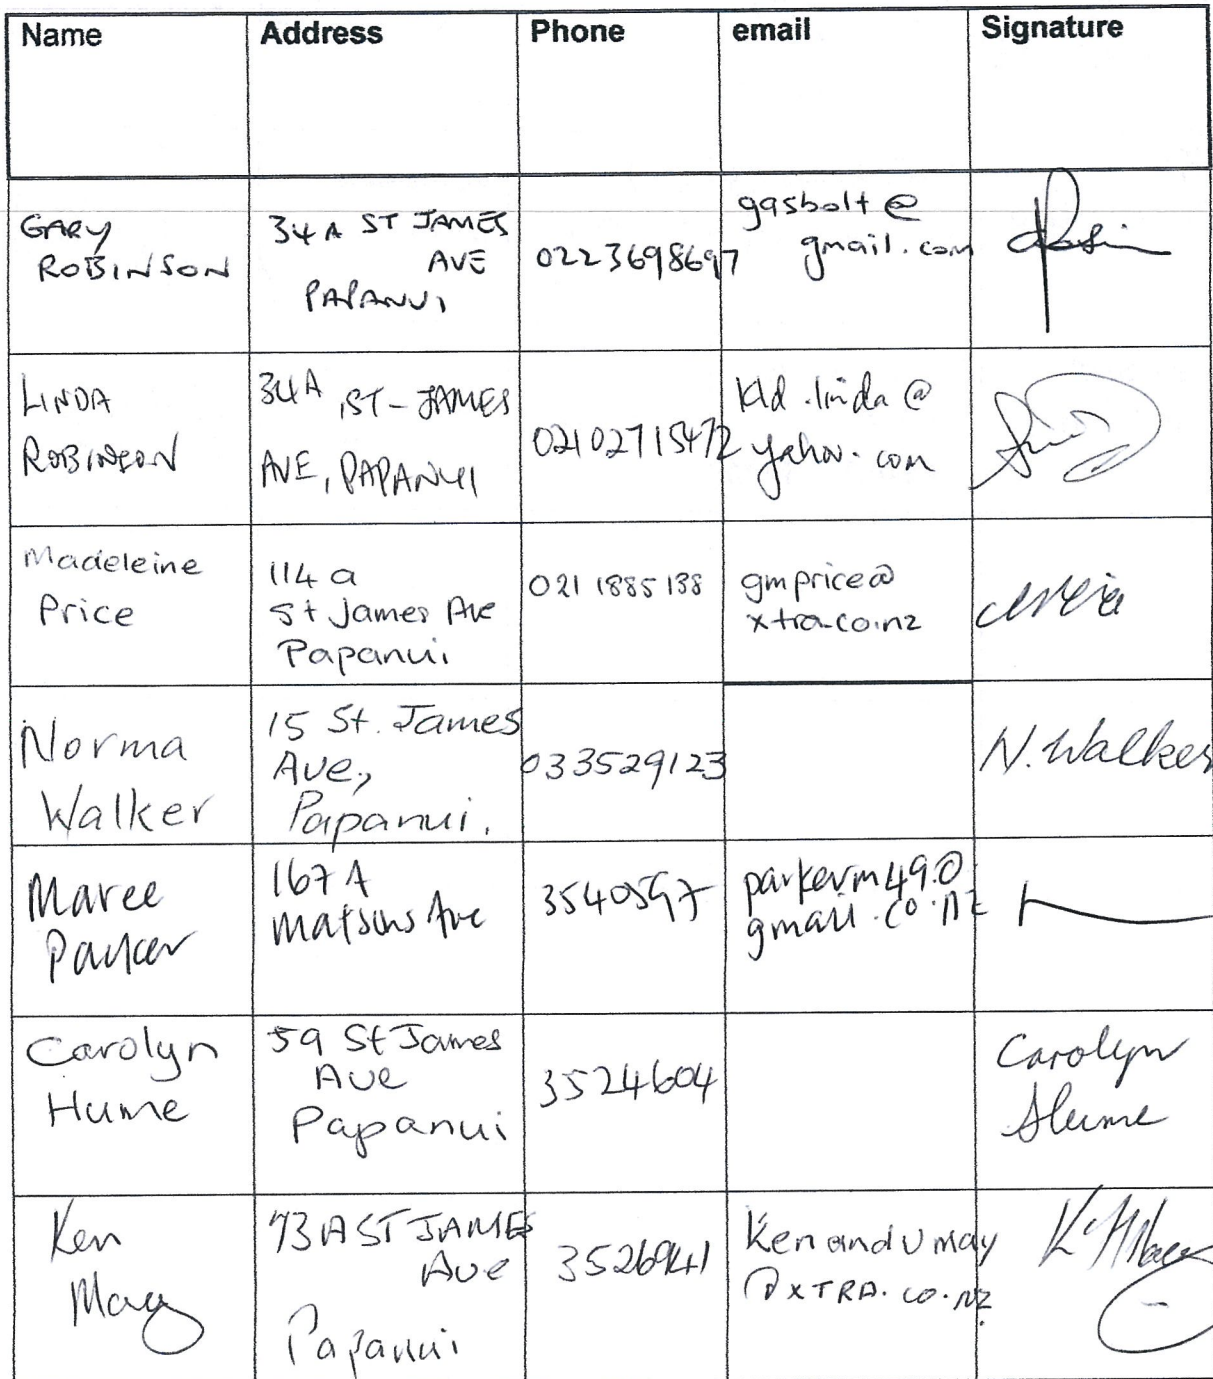 Name Address Phone email Signature
GARY
ROBINSON
34A ST JAMES
AVE
PAPANUI
0223698697
gasbolt@
gmail.com
LINDA
ROBINSON
34A, ST-JAMES
AVE, PAPANUI
02102715472
kld.linda@
yahoo.com
Madeleine
Price
114 a
St James Ave
Papanui
021 1885 138
gmprice@
xtra.co.nz
Norma
Walker
15 St. James
Ave,
Papanui.
033529123
N. Walker
Maree
Parker
167 A
Matsons Ave
3540597
parkerm49@
gmail.co.nz
Carolyn
Hume
59 St James
Ave
Papanui
3524604
Carolyn
Hume
Ken
May
73A ST JAMES
Ave
Papanui
3526941
Kenandvmay
@XTRA.co.NZ